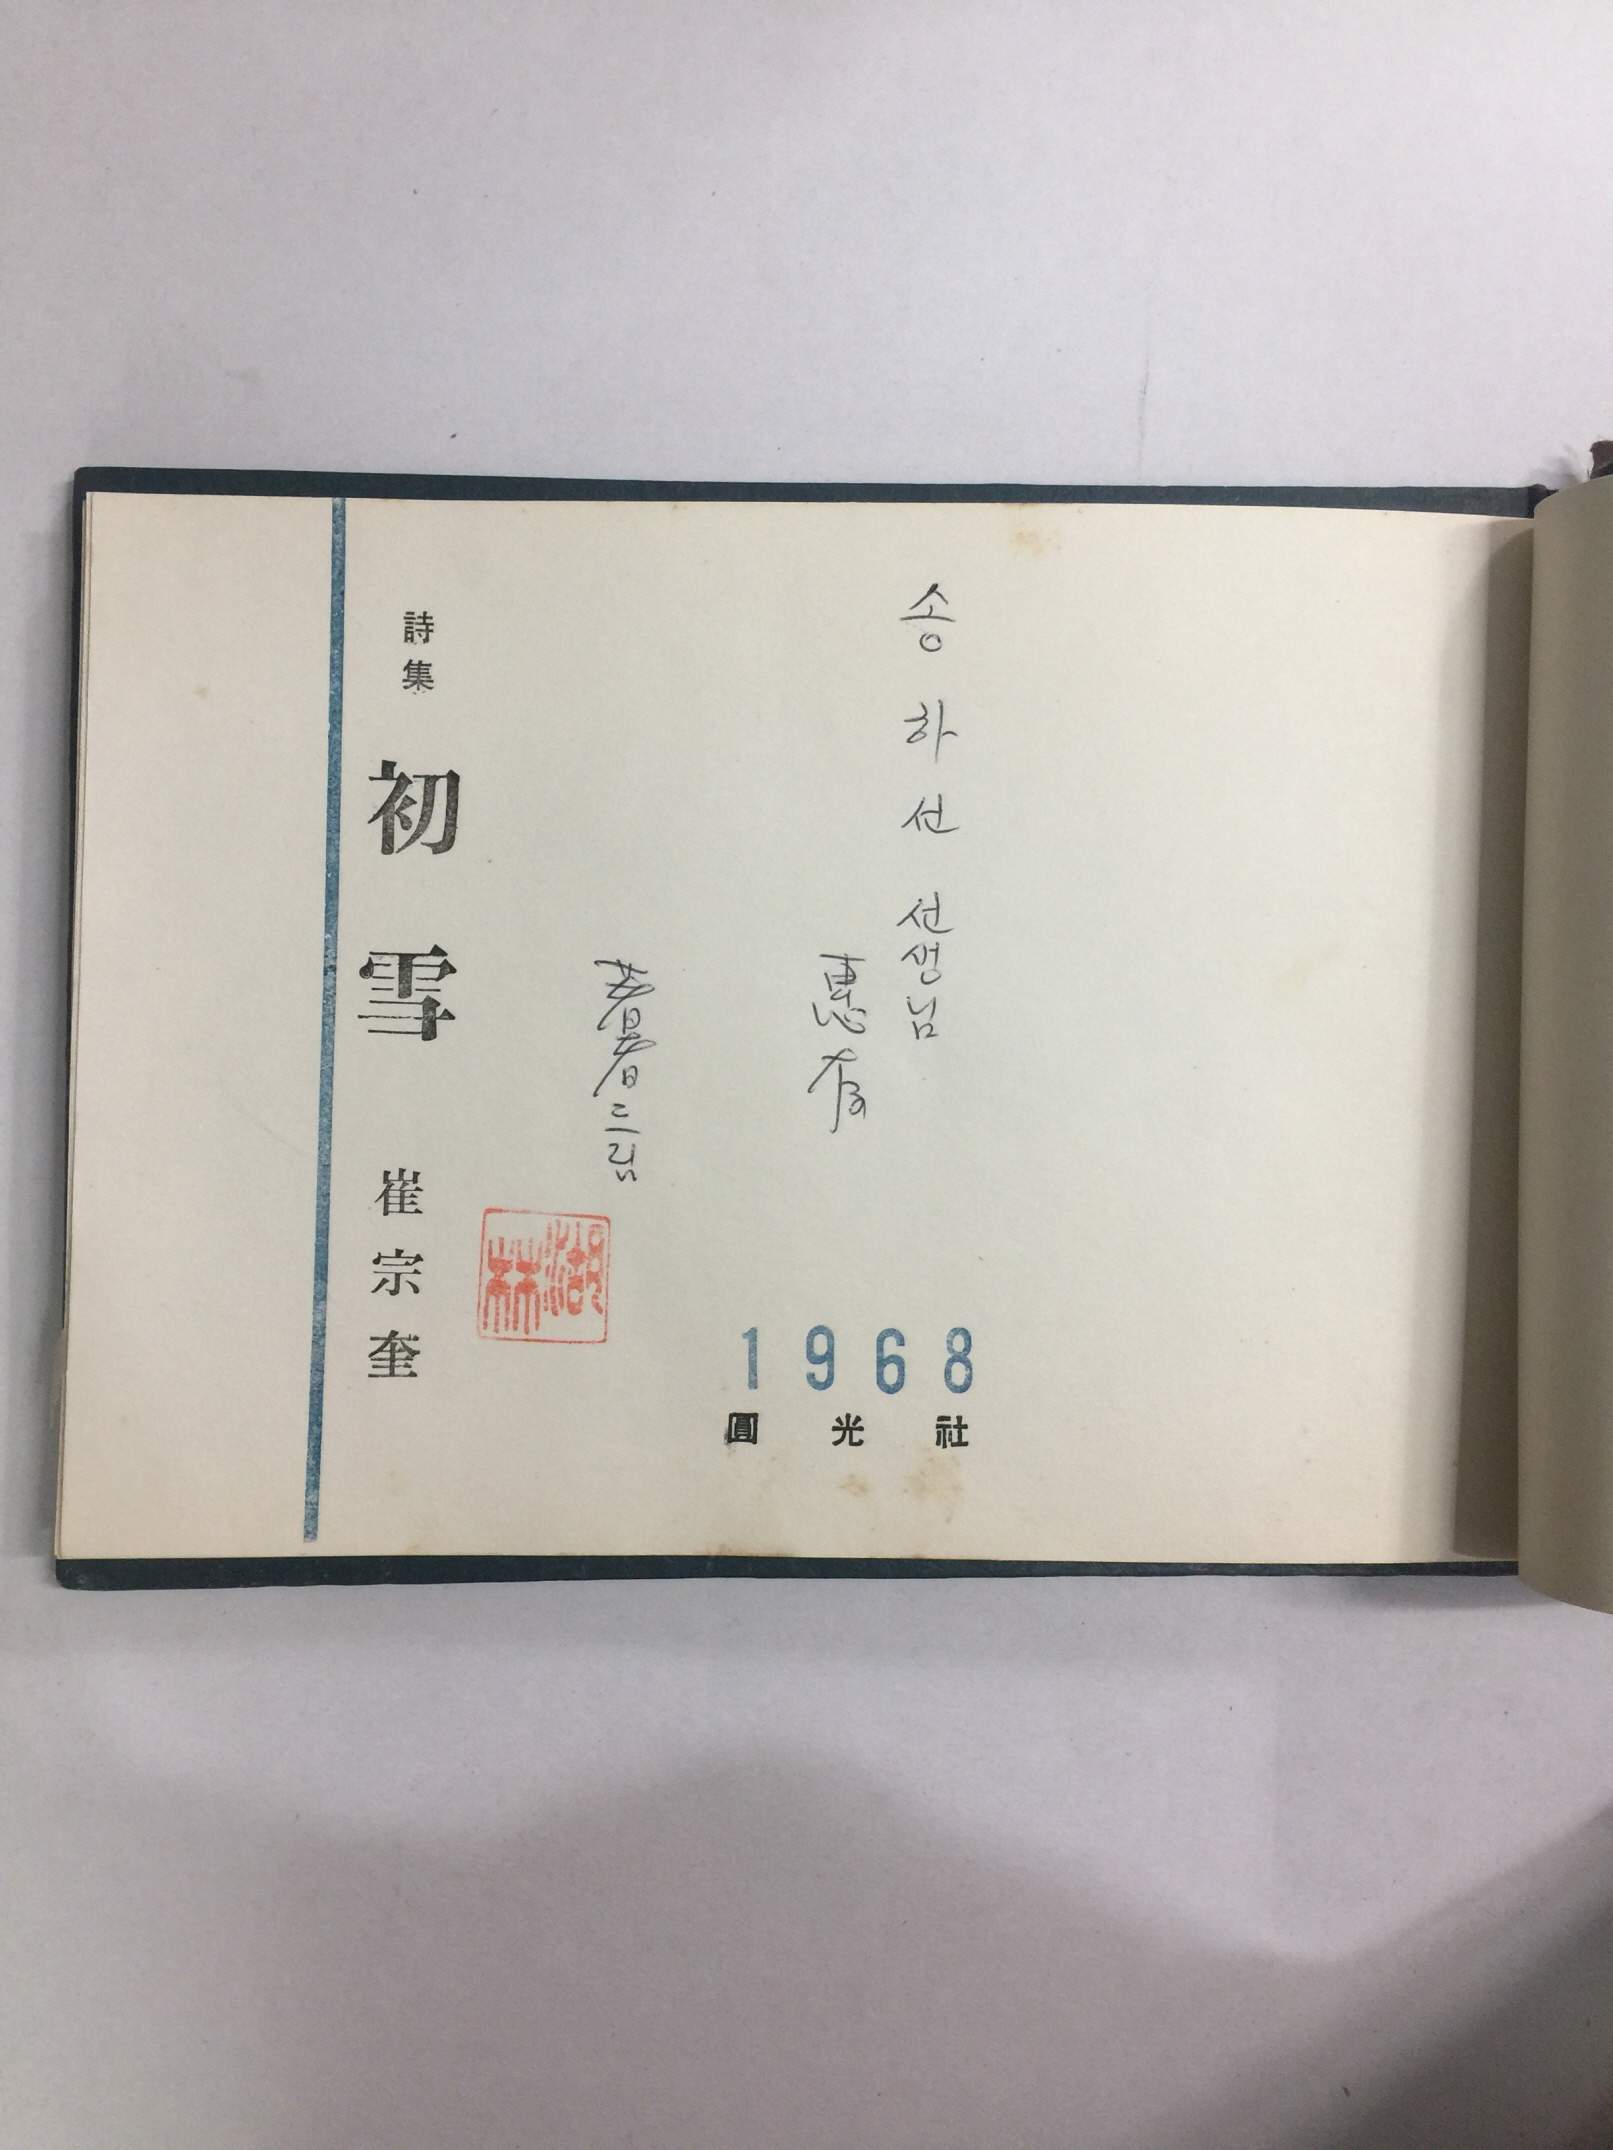 송하선 선생님
惠存
著者 드림
湖林
詩集 初雪 崔宗奎
1968
圓光社